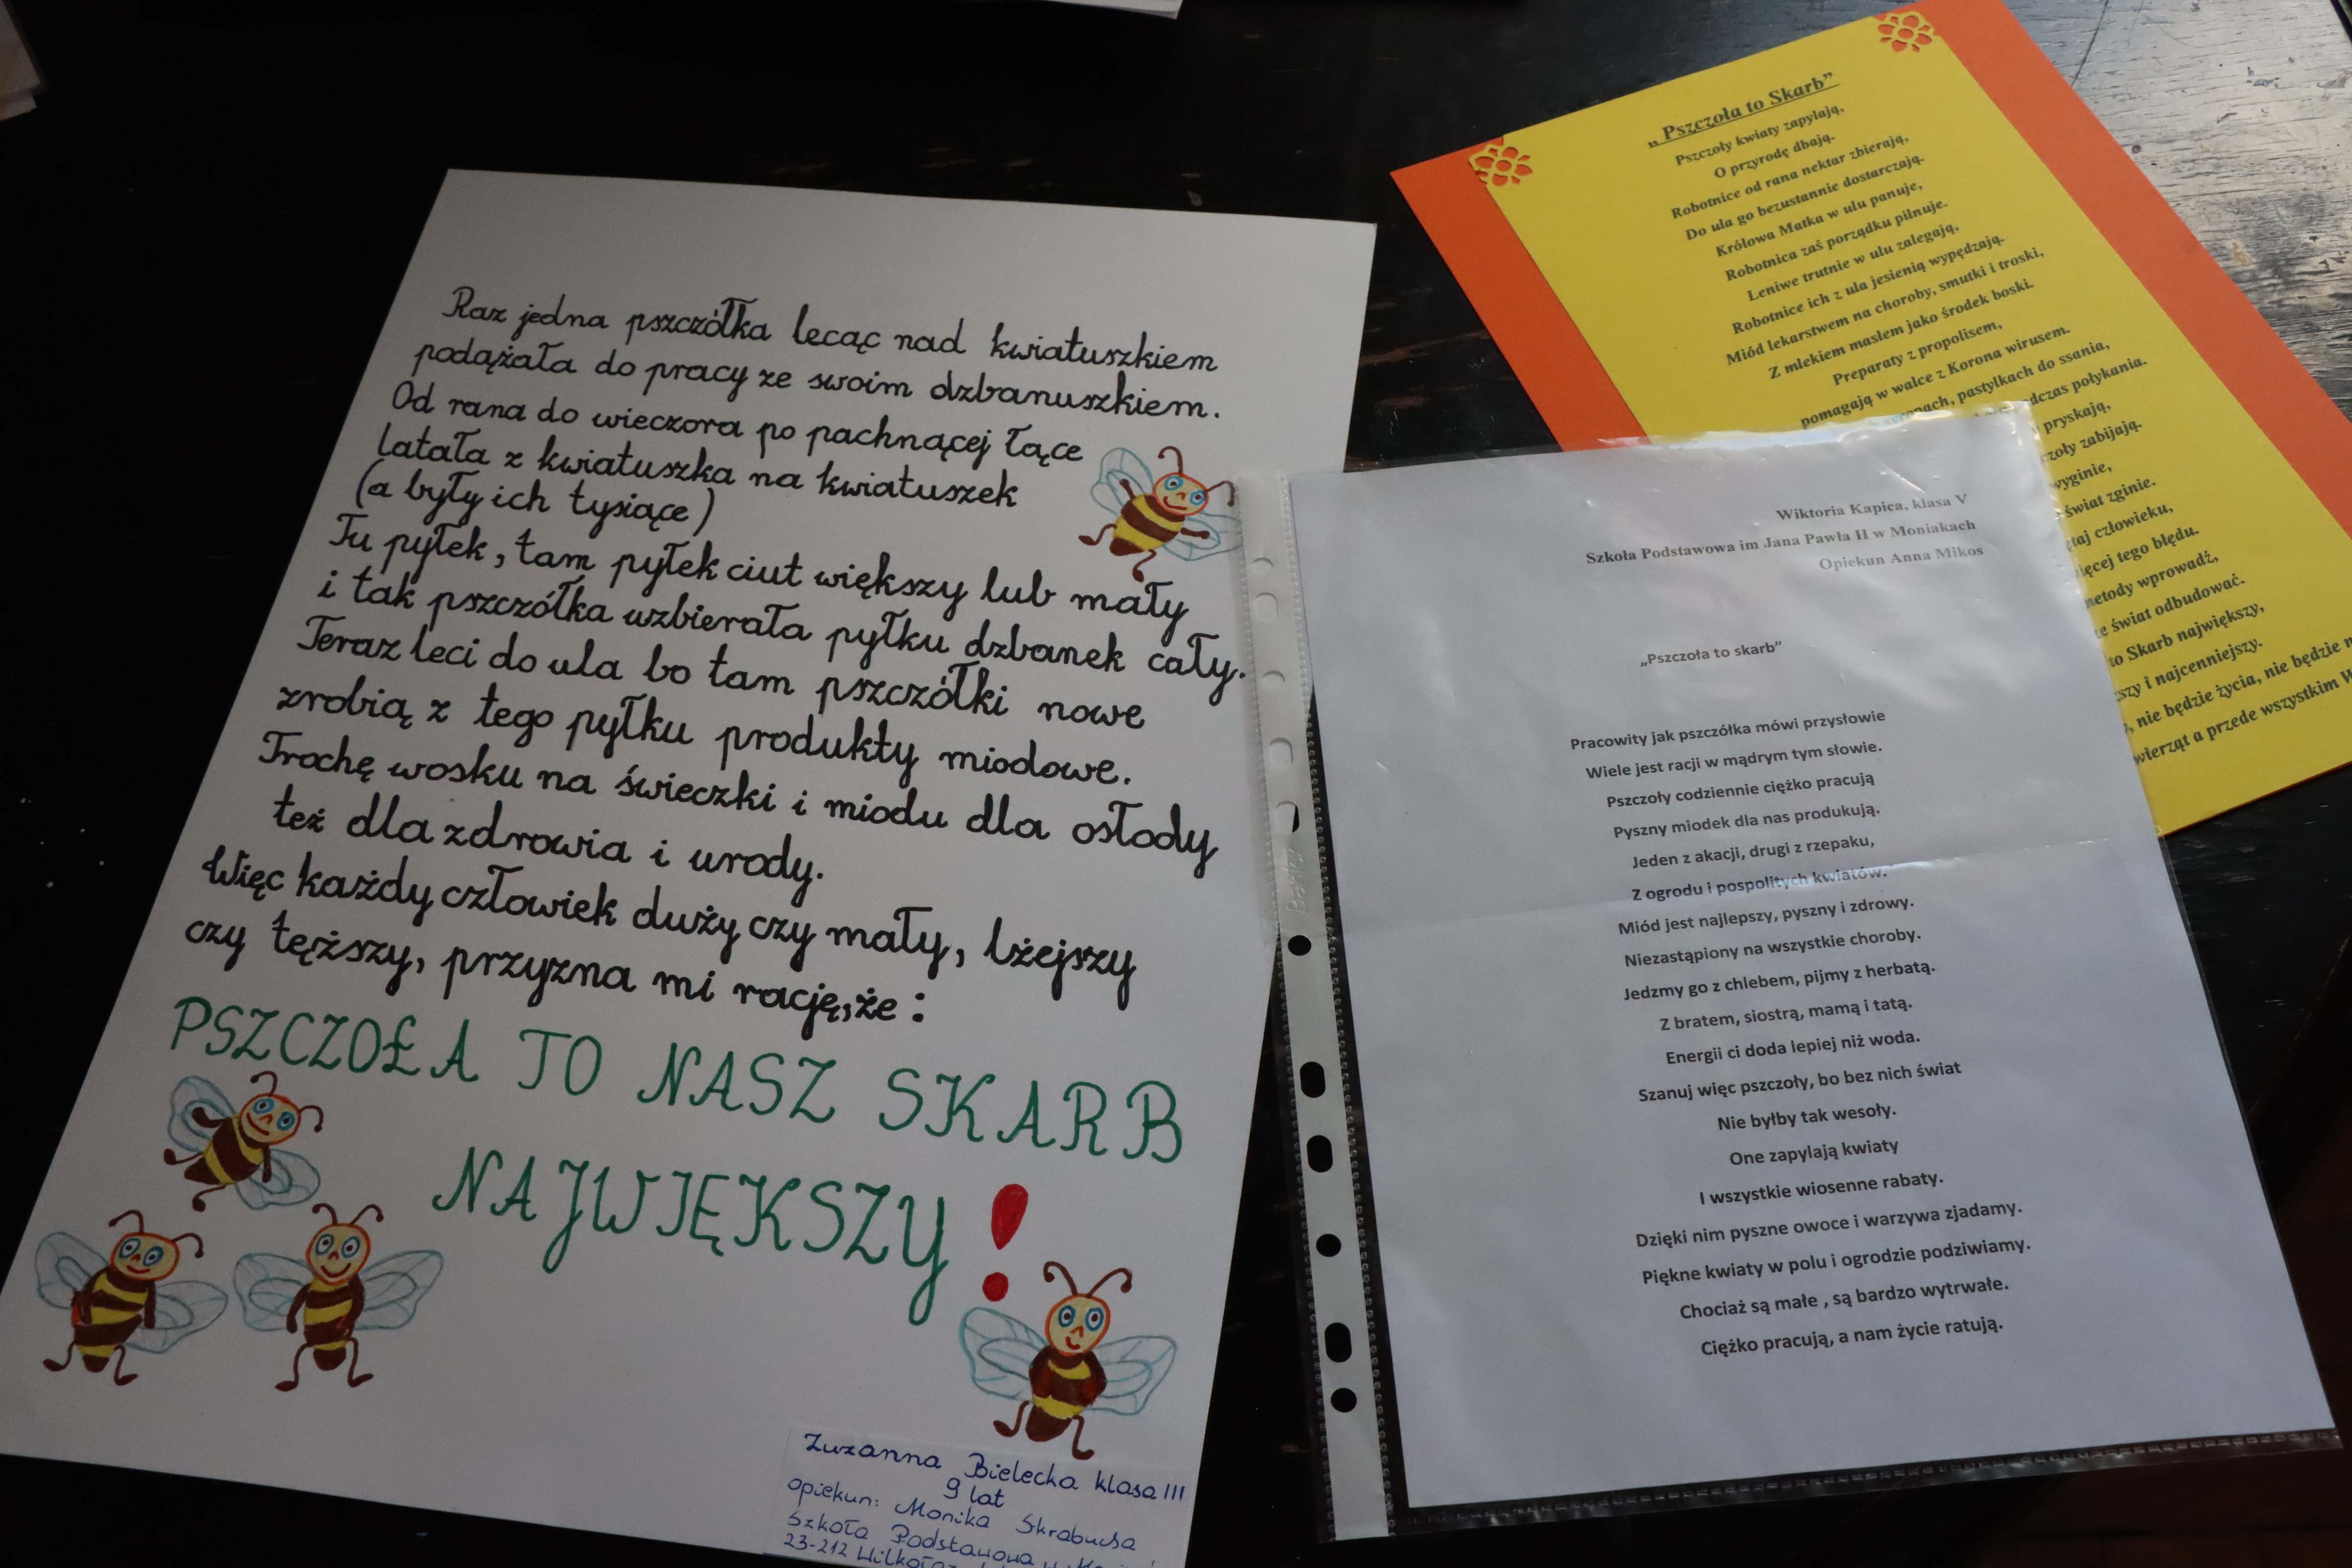 Raz jedna pszczółka lecąc nad kwiatuszkiem
podążała do pracy ze swoim dzbanuszkiem.
Od rana do wieczora po pachnącej łące
latała z kwiatuszka na kwiatuszek
(a były ich tysiące)
Tu pyłek, tam pyłek ciut większy lub mały
i tak pszczółka uzbierała pyłku dzbanek cały.
Teraz leci do ula bo tam pszczółki nowe
zrobią z tego pyłku produkty miodowe.
Trochę wosku na świeczki i miodu dla osłody
też dla zdrowia i urody.
Więc każdy człowiek duży czy mały, lżejszy
czy tęższy, przyzna mi rację, że:
PSZCZOŁA TO NASZ SKARB
NAJWIĘKSZY!
Zuzanna Bielecka klasa III
9 lat
opiekun: Monika
Szkoła Podstawowa
23-212
„Pszczoła to Skarb”
Pszczoły kwiaty zapylają,
O przyrodę dbają.
Robotnice od rana nektar zbierają,
Do ula go bezustannie dostarczają.
Królowa Matka w ulu panuje,
Robotnica zaś porządku pilnuje.
Leniwe trutnie w ulu zalegają,
Robotnice ich z ula jesienią wypędzają.
Miód lekarstwem na choroby, smutki i troski,
Z mlekiem masłem jako środek boski.
Preparaty z propolisem,
pomagają w walce z Korona wirusem.
pastylkach do ssania,
podczas połykania.
pryskają,
zabijają.
świat zginie.
człowieku,
tego błędu.
wprowadź,
świat odbudować.
to Skarb największy,
i najcenniejszy.
nie będzie życia, nie będzie
a przede wszystkim
Wiktoria Kapica, klasa V
Szkoła Podstawowa im Jana Pawła II w Moniakach
Opiekun Anna Mikos
„Pszczoła to skarb”
Pracowity jak pszczółka mówi przysłowie
Wiele jest racji w mądrym tym słowie.
Pszczoły codziennie ciężko pracują
Pyszny miodek dla nas produkują.
Jeden z akacji, drugi z rzepaku,
Z ogrodu i pospolitych kwiatów.
Miód jest najlepszy, pyszny i zdrowy.
Niezastąpiony na wszystkie choroby.
Jedzmy go z chlebem, pijmy z herbatą.
Z bratem, siostrą, mamą i tatą.
Energii ci doda lepiej niż woda.
Szanuj więc pszczoły, bo bez nich świat
Nie byłby tak wesoły.
One zapylają kwiaty
I wszystkie wiosenne rabaty.
Dzięki nim pyszne owoce i warzywa zjadamy.
Piękne kwiaty w polu i ogrodzie podziwiamy.
Chociaż są małe , są bardzo wytrwałe.
Ciężko pracują, a nam życie ratują.